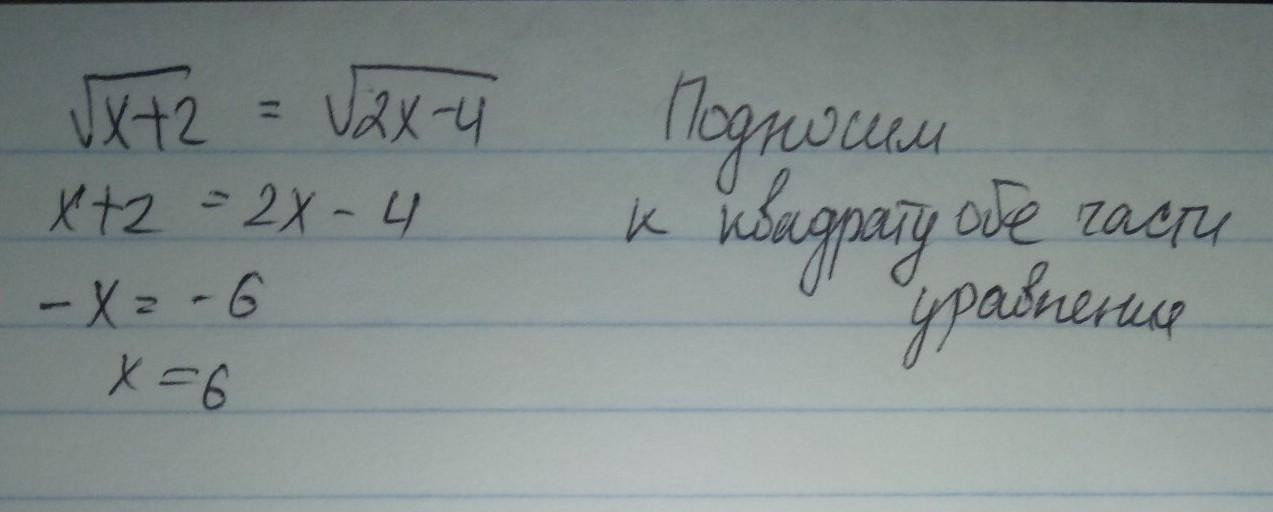 √x+2 = √2x-4 Подносим
x+2 = 2x - 4 к квадрату обе части
-x = -6 уравнения
x = 6